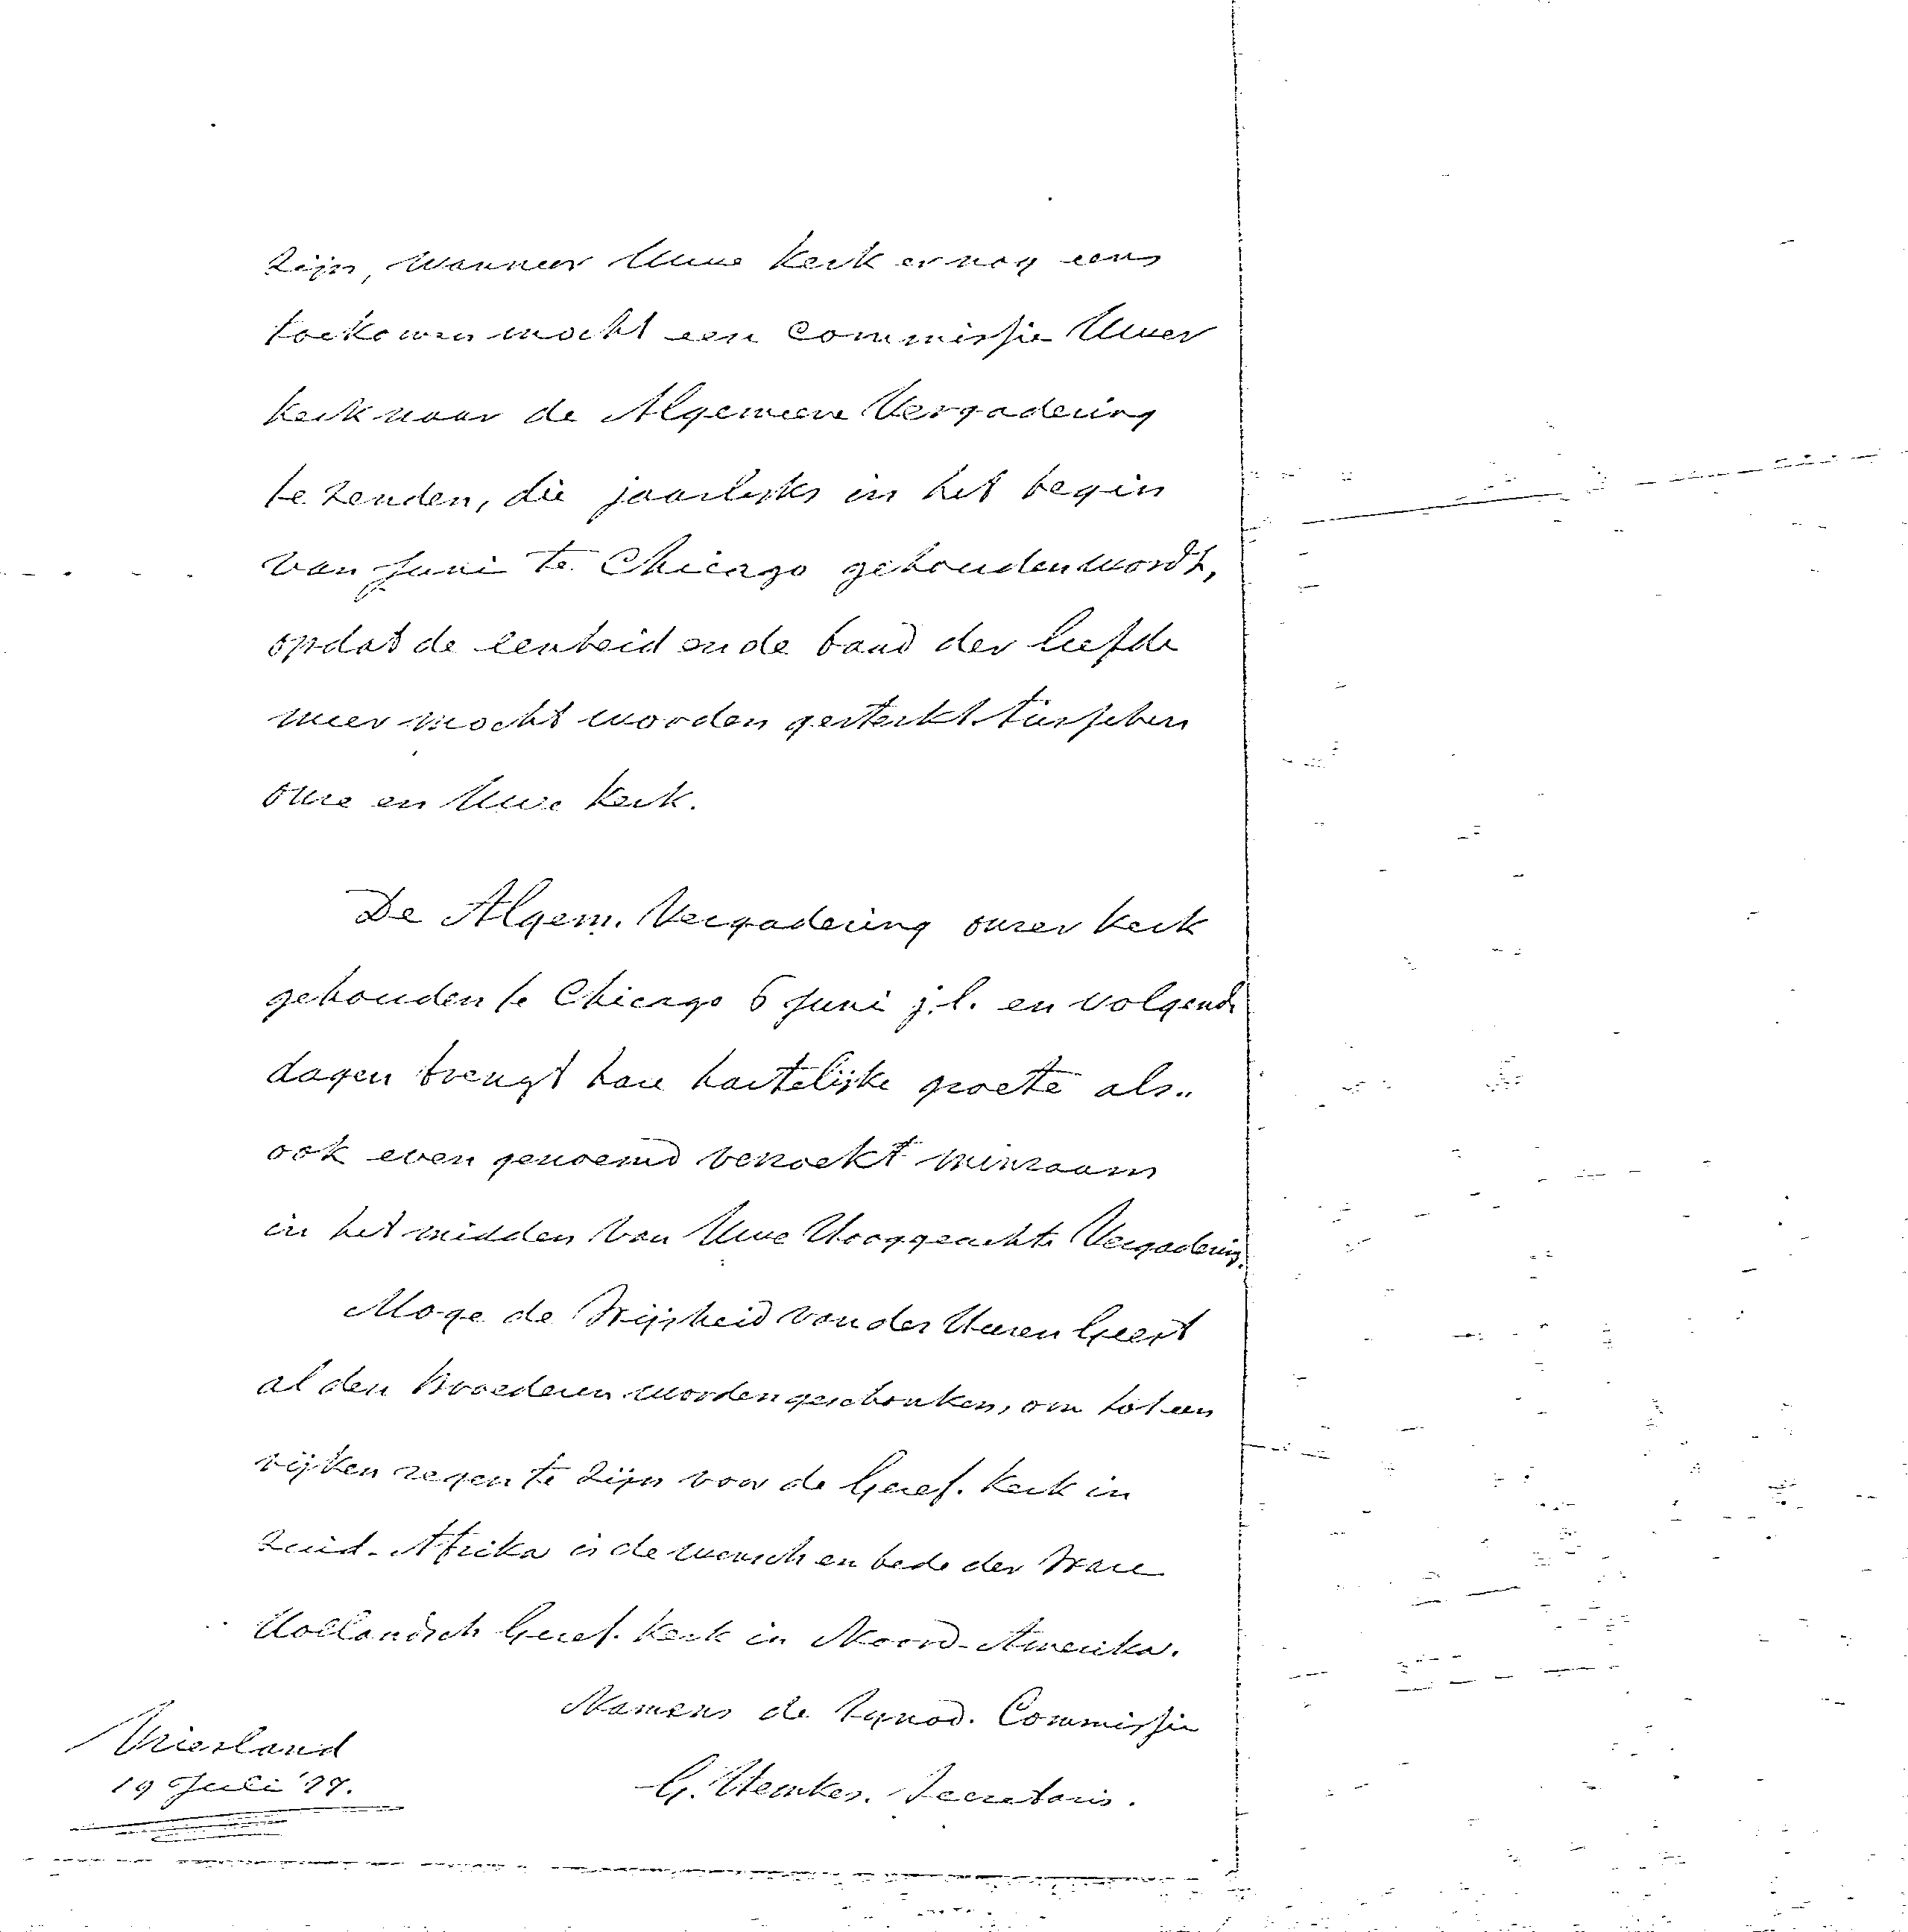 zijn, wanneer Uwe Kerk er nog eens
toekomen mocht een Commissie Uwer
Kerk naar de Algemeene Vergadering
te zenden, die jaarlijks in het begin
van Juni te Chicago gehouden wordt,
opdat de eenheid en de band der liefde
meer mocht worden gesterkt tusschen
onze en Uwe Kerk.
De Algem. Vergadering onzer Kerk
gehouden te Chicago 6 Juni j.l. en volgende
dagen brengt hare hartelijke groete als
ook even genoemd verzoekt minzaam
in het midden van Uwe Hooggeachte Vergadering.
Moge de Wijsheid van des Heeren Geest
al den Broederen worden geschonken, om tot een
rijken zegen te zijn voor de Geref. Kerk in
Zuid-Afrika is de wensch en bede der Ware
Hollandsch Geref. Kerk in Noord-Amerika.
Namens de Synod. Commissie
Vriesland
19 Juli '77.
G. Hemkes. Secretaris.